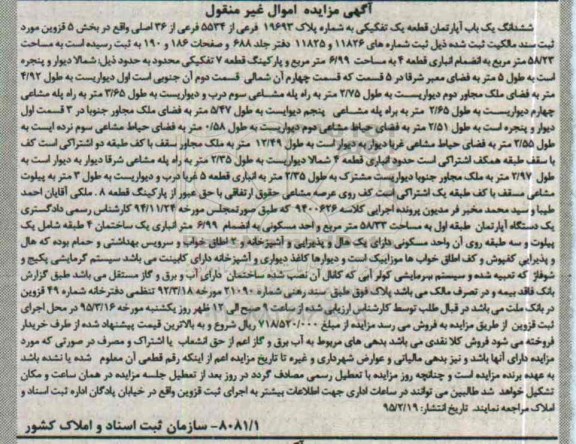 آگهی مزایده اموال غیر منقول
ششدانگ یک باب آپارتمان قطعه یک تفکیکی به شماره پلاک ۱۹۶۹۳ فرعی از ۵۵۳۴ فرعی از ۳۶ اصلی واقع در بخش ۵ قزوین مورد
ثبت سند مالکیت ثبت شده ذیل ثبت شماره های ۱۱۸۲۶ و ۱۱۸۲۵ دفتر جلد ۶۸۸ و صفحات ۱۸۶ و ۱۹۰ به ثبت رسیده است به مساحت
۵۸/۲۳ متر مربع به انضمام انباری قطعه ۴ به مساحت ۶/۹۹ متر مربع و پارکینگ قطعه ۷ تفکیکی محدود به حدود ذیل: شمالا دیوار و پنجره
است به طول ۵ متر به فضای معبر شرقا در ۵ قسمت که قسمت چهارم آن شمالی قسمت دوم آن جنوبی است اول دیواریست به طول ۴/۹۲
متر به فضای ملک مجاور دوم دیواریست به طول ۲/۷۵ متر به راه پله مشاعی سوم درب و دیواریست به طول ۳/۶۵ متر به راه پله مشاعی
چهارم دیواریست به طول ۲/۶۵ متر به براه پله مشاعی پنجم دیوایست به طول ۵/۴۷ متر به فضای ملک مجاور جنوبا در ۳ قسمت اول
دیوار و پنجره است به طول ۲/۵۱ متر به فضای حیاط مشاعی دوم دیواریست به طول ۰/۵۸ متر به فضای حیاط مشاعی سوم نرده ایست به
طول ۲/۵۵ متر به فضای حیاط مشاعی غربا دیوار به دیوار است به طول ۱۲/۴۹ متر به ملک مجاور سقف با کف طبقه دو اشتراکی است کف
با سقف طبقه همکف اشتراکی است حدود انباری قطعه ۴ شمالا دیواریست به طول ۲/۳۵ متر به راه پله مشاعی شرقا دیوار به دیوار است به
طول ۲/۹۷ متر به ملک مجاور جنوبا دیواریست مشترک به طول ۲/۳۵ متر به انباری قطعه ۵ غربا درب و دیواریست به طول ۳ متر به پیلوت
مشاعی سقف با کف طبقه یک اشتراکی است کف روی عرصه مشاعی حقوق ارتفاقی با حق عبور از پارکینگ قطعه ۸ . ملکی آقایان احمد
طیبا و سید محمد مخبر فر مدیون پرونده اجرایی کلاسه ۹۴۰۰۶۲۶ که طبق صورتمجلس مورخه ۹۴/۱۱/۲۴ کارشناس رسمی دادگستری
یک دستگاه آپارتمان طبقه اول به مساحت ۵۸/۳۳ متر مربع و احد مسکونی به انضمام ۶/۹۹ متر انباری یک ساختمان ۴ طبقه شامل یک
پیلوت و سه طبقه روی آن واحد مسکونی دارای یک هال و پذیرایی و آشپزخانه و ۲ اطاق خواب و سرویس بهداشتی و حمام بوده که هال
و پذیرایی کفپوش و کف اطاق خواب ها موزاییک است و دیوارها کاغذ دیواری و آشپزخانه دارای کابینت می باشد سیستم گرمایشی پکیج و
شوفاژ که تعبیه شده و سیستم سرمایشی کولر آبی که کانال آن نصب شده ساختمان دارای آب و برق و گاز مستقل می باشد طبق گزارش
بانک فاقد بیمه و در تصرف مالک می باشد پلاک فوق طبق سند رهنی شماره ۲۱۰۹۰ مورخه ۹۲/۳/۱۸ تنظلمی دفترخانه شماره ۴۹ قزوین
در بانک ملت می باشد در قبال طلب توسط کارشناس ارزیابی شده از ساعت ۹ صبح الی ۱۲ ظهر روز یکشنبه مورخه ۹۵/۳/۱۶ در محل اجرای
ثبت قزوین از طریق مزایده به فروش می رسد مزایده از مبلغ ۷۱۸/۵۲۰/۰۰۰ ریال شروع و به بالاترین قیمت پیشنهاد شده از طرف خریدار
فروخته می شود فروش کلا نقدی می باشد بدهی های مربوط به آب برق و گاز اعم از حق انشعاب یا اشتراک و مصرف در صورتی که مورد
مزایده دارای آنها باشد و نیز بدهی مالیاتی و عوارض شهرداری و غیره تا تاریخ مزایده اعم از اینکه رقم قطعی آن معلوم شده یا نشده باشد
به عهده برنده مزایده است و چنانچه روز مزایده با تعطیل رسمی مصادف گردد در روز بعد از تعطیل جلسه مزایده در همان ساعت و مکان
تشکیل خواهد شد طالبین می توانند در ساعات اداری جهت اطلاعات بیشتر به اجرای ثبت قزوین واقع در خیابان پادگان اداره ثبت اسناد و
املاک مراجعه نمایند. تاریخ انتشار: ۹۵/۲/۱۹
۸۰۸۱/۱- سازمان ثبت اسناد و املاک کشور